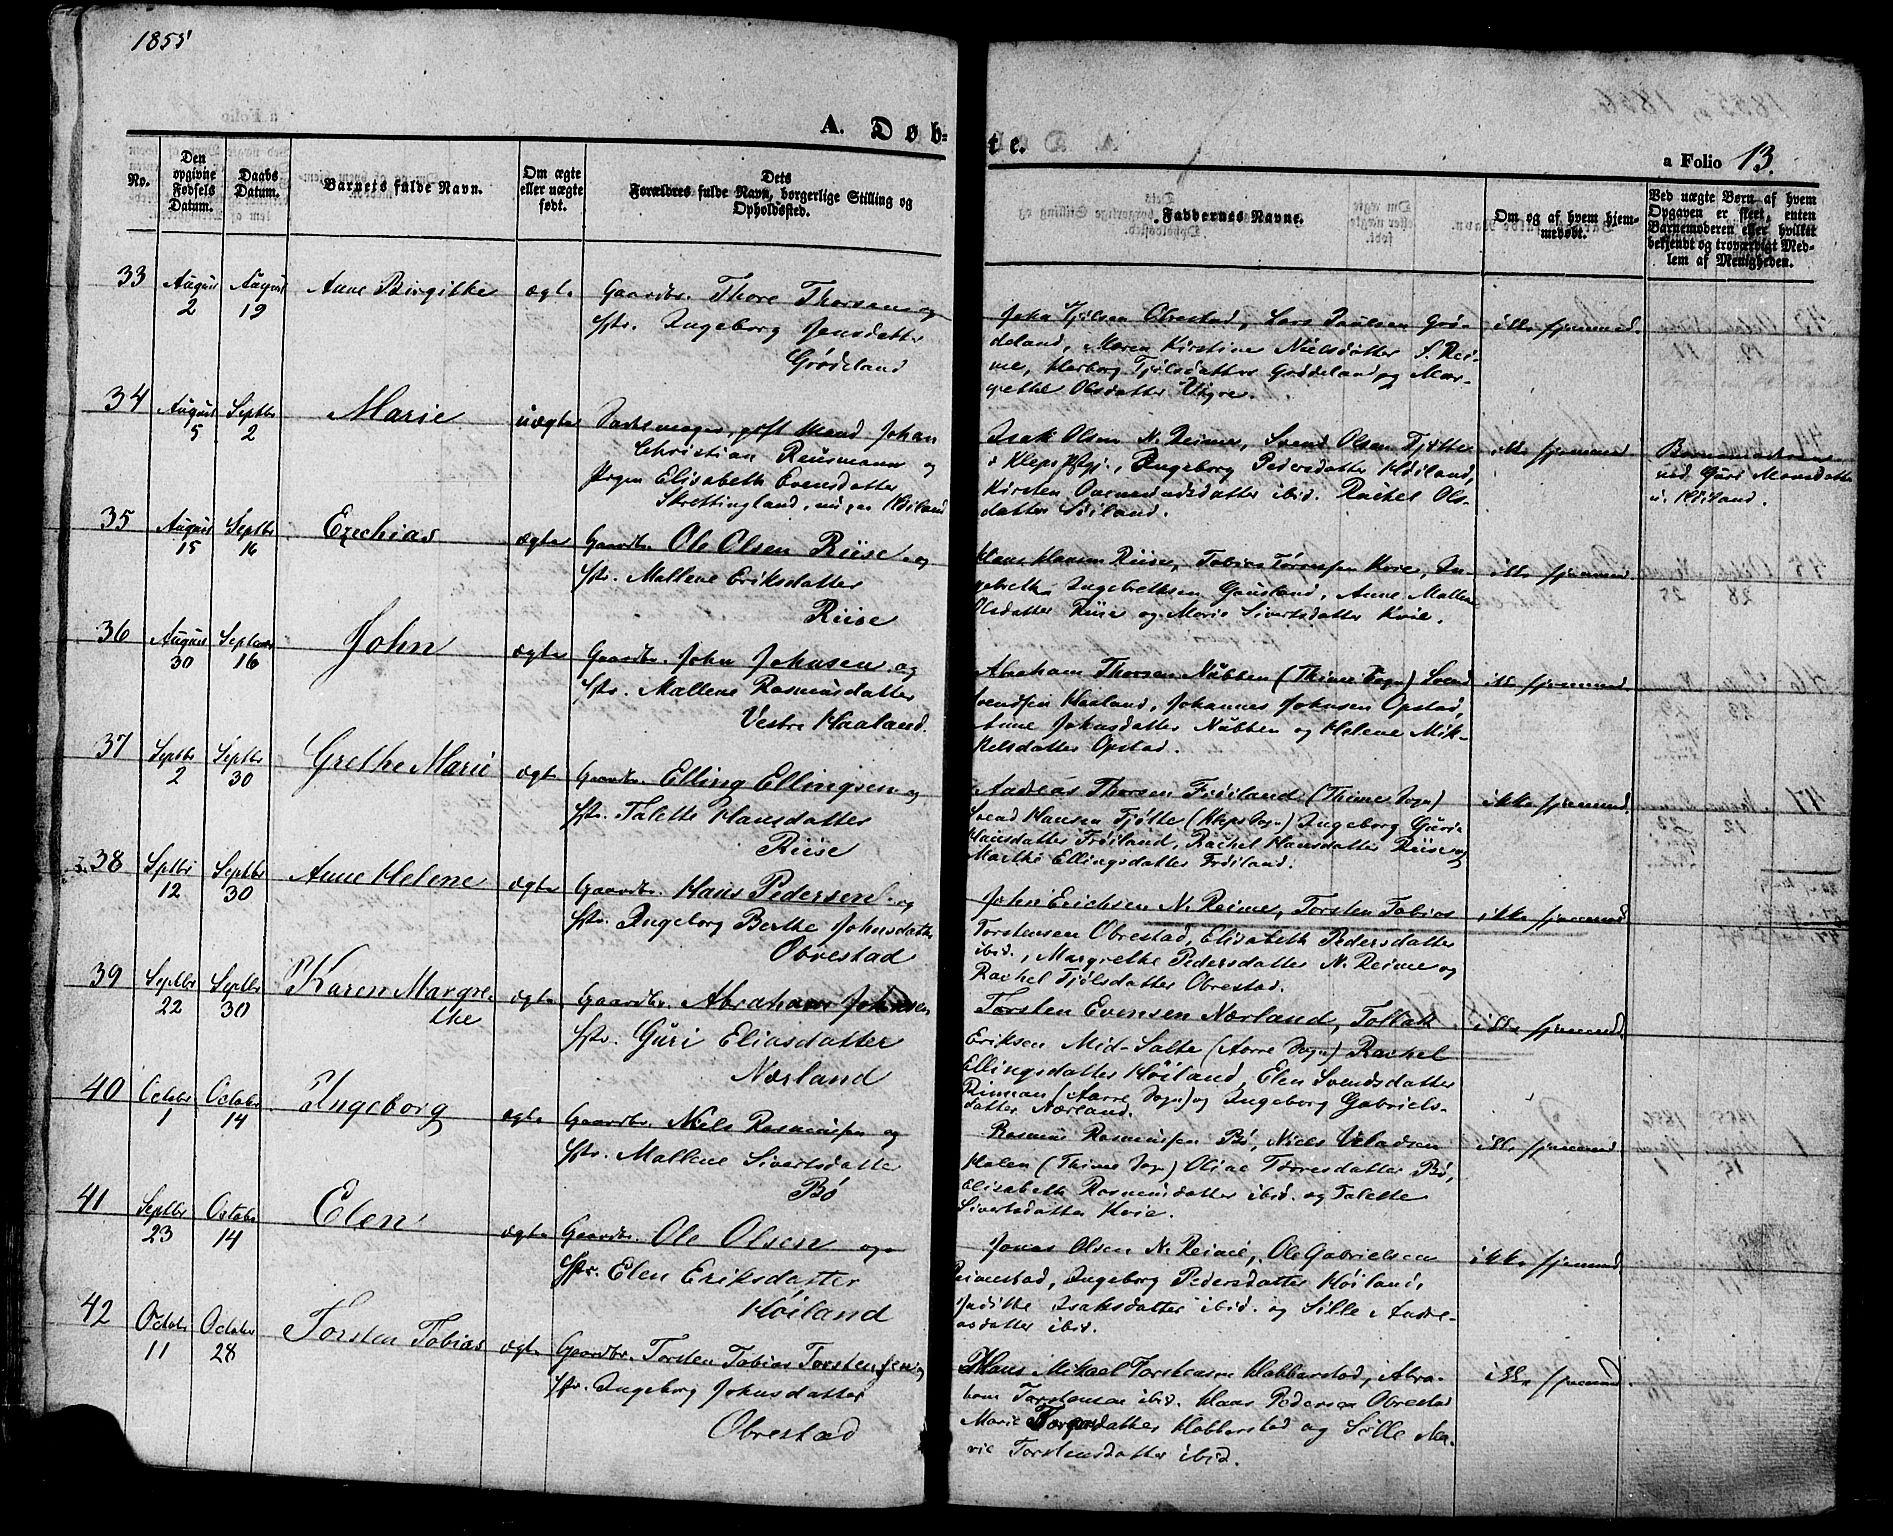 1855
A. Døb-
te.
a Folio 13.
No.
Den opgivne Fødsels Datum.
Daabs Datum.
Barnets fulde Navn.
Om ægte eller uægte født.
Dets Forældres fulde Navn, borgerlige Stilling og Opholdssted.
Faddernes Navne.
Om og af hvem hjemmedøbt.
Ved uægte Børn af hvem Opgaven er skeet, enten Barnemoderen eller hvilket bekjendt og troværdigt Medlem af Menigheden.
33 August 2 August 19 Anne Birgithe ægte Gaardbr. Thore Thorsen og
Hstr. Ingeborg Jensdatter
Grødeland
John Tjølsen Obrestad, Lars Paulsen Grø-
deland, Maren Kirstine Nielsdatter S. Rei-
me, Herborg Tjølsdatter Grødeland og Mar-
grethe Olsdatter
ikke hjemmed.
34 August 5 Septbr 2 Marie uægte gift Mand Johan
Christian og
Pigen Elisabeth Evensdatter
Skrettingland, nu paa Høiland
Isak Olsen N. Reime, Svend Olsen Tjøtte
i Kleps Pgj., Ingeborg Pedersdatter Høiland,
Kirsten datter ibid. Rachel Ols-
datter Høiland.
ikke hjemmed
ved Guri Monsdatter
Høiland.
35 August 15 Septbr 16 Ezechias ægte Gaardbr. Ole Olsen Riise og
Hstr. Mallene Eriksdatter
Riise
Hans Hansen Riise, Tobias Kvie, In-
gebreth Ingebrethsen Gausland, Anne Malene
Olsdatter Riise og Marie Sivertsdatter Kvie.
ikke hjemmed
36 August 30 Septembr 16 John ægte Gaardbr. John Johnsen og
Hstr. Mallene Rasmusdatter
Vestre Haaland.
Abraham Thorsen Nubben (Thime Sogn) Svend
Svendsen Haaland, Johannes Johnsen Opstad,
Anne Johnsdatter Nubben og Helene Mik-
kelsdatter Opstad.
ikke hjemmed.
37 Septbr 2 Septbr 30 Grethe Marie ægte Gaardbr. Elling Ellingsen og
Hstr. Talette Hansdatter
Riise
Andreas Thorsen Frøiland (Thime Sogn)
Svend Hansen Tjøtte (Kleps Sogn) Ingeborg Guri-
Hansdatter Frøiland, Rachel Hansdatter Riise og
Marthe Ellingsdatter Frøiland.
ikke hjemmed.
38 Septbr 12 Septbr 30 Anne Helene ægte Gaardbr. Hans Pedersen og
Hstr. Ingeborg Berthe Johnsdatter
Obrestad
John Erichsen N. Reime, Torsten Tobias
Torstensen Obrestad, Elisabeth Pedersdatter
ibid., Margrethe Pedersdatter N. Reime og
Rachel Tjølsdatter Obrestad.
ikke hjemmed.
39 Septbr 22 Septbr 30 Karen Margre-
the
ægte Gaardbr. Abraham Johnsen
Hstr. Guri Eliasdatter
Nærland
Torsten Evensen Nærland, Tollak
Eriksen Mid-Salte (Aarre Sogn) Rachel
Ellingsdatter Høiland, Elen Svendsdatter
(Aarre Sogn) og Ingeborg Gabriels-
datter Nærland.
ikke hjemmed.
40 October 1 October 14 Ingeborg ægte Gaardbr. Niels Rasmusen og
Hstr. Mallene Sivertsdatter
Bø
Rasmus Rasmusen Bø, Niels
Holen (Thime Sogn) Oline Torresdatter Bø,
Elisabeth Rasmusdatter ibid. og Talette
Sivertsdatter Kvie.
ikke hjemmed
41 Septbr 23 October 14 Elen ægte Gaardbr. Ole Olsen og
Hstr. Elen Eriksdatter
Høiland
Jonas Olsen N. Reime, Ole Gabrielsen
Reimestad, Ingeborg Pedersdatter Høiland,
Judithe Isaksdatter ibid. og Sille Andre-
asdatter ibid.
ikke hjemmed.
42 October 11 October 28 Torsten Tobias ægte Gaardbr. Torsten Tobias Torstensen og
Hstr. Ingeborg Johnsdatter
Obrestad
Hans Mikael Torstensen Hobberstad, Abra-
ham Torstensen ibid. Hans Pedersen Obrestad
Marie datter Hobberstad og Sille Ma-
rie Torstensdatter ibid.
ikke hjemmed.